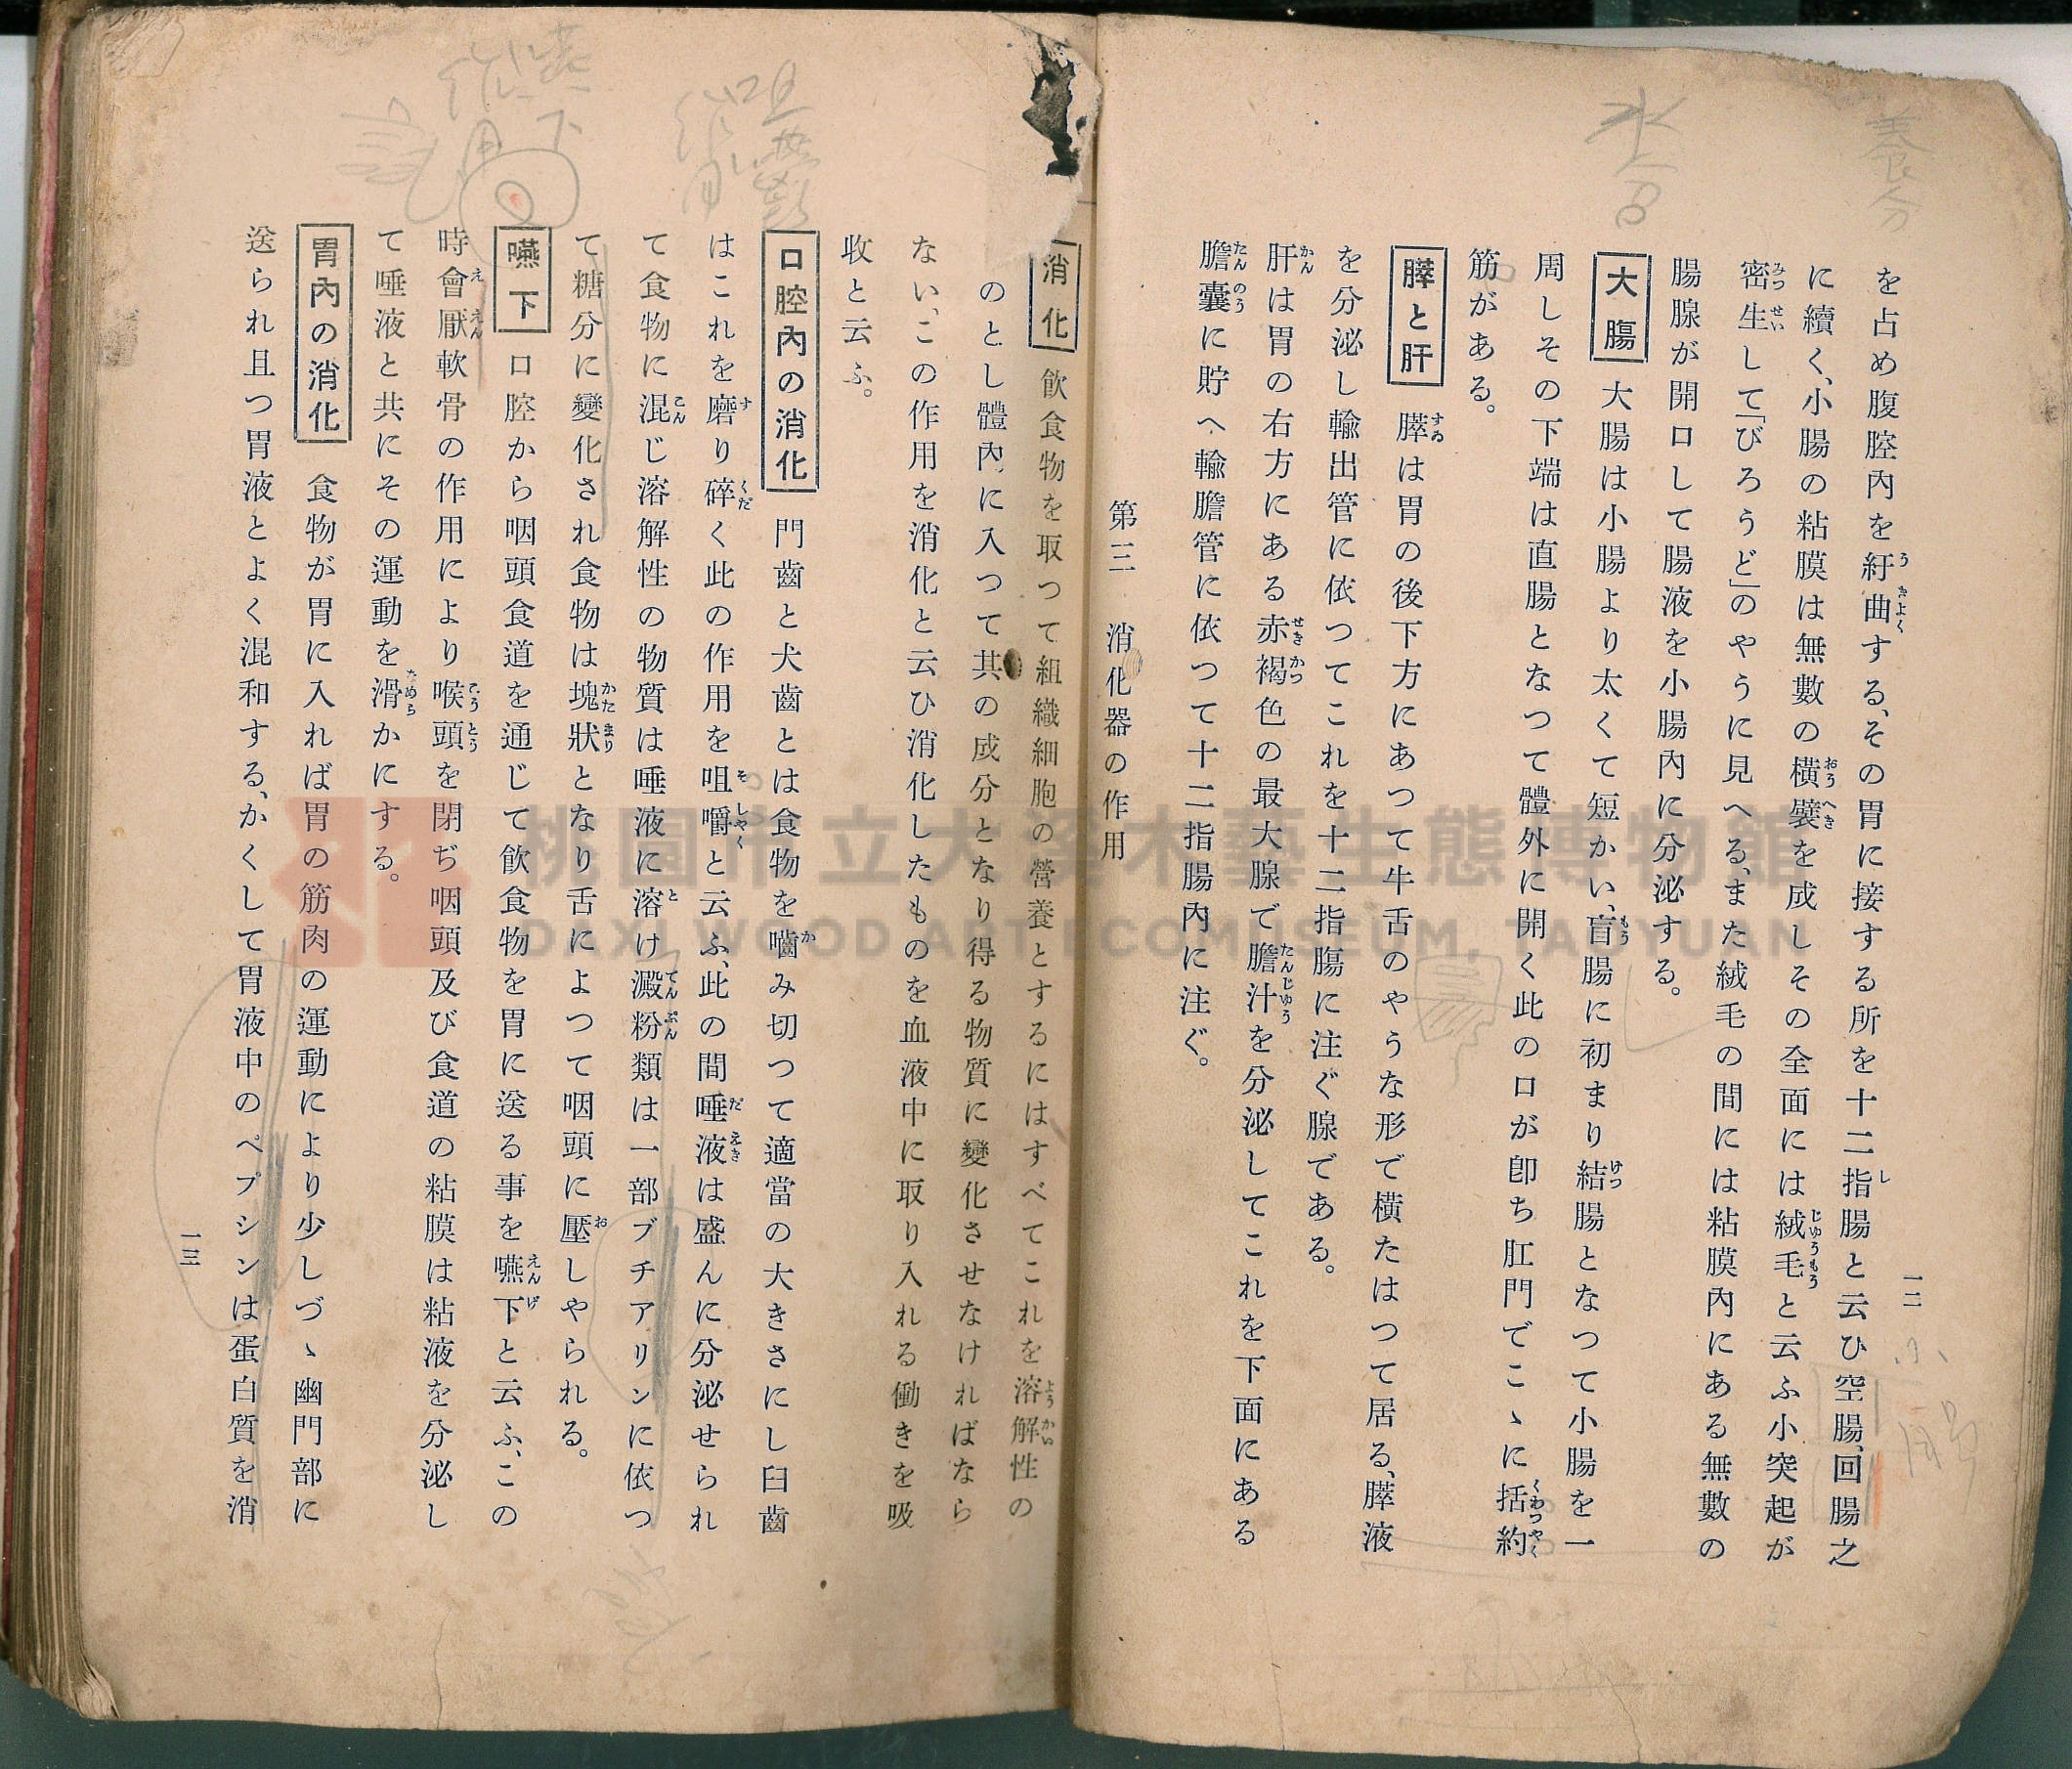 一二
を占め腹腔內を紆曲する、その胃に接する所を十二指腸と云ひ空腸、回腸之
に續く、小腸の粘膜は無數の橫襞を成しその全面には絨毛と云ふ小突起が
密生して「びろうど」のやうに見へる、また絨毛の間には粘膜內にある無數の
腸腺が開口して腸液を小腸內に分泌する。
大腸 大腸は小腸より太くて短かい、盲腸に初まり結腸となつて小腸を一
周しその下端は直腸となつて體外に開く此の口が卽ち肛門でこゝに括約
筋がある。
膵と肝 膵は胃の後下方にあつて牛舌のやうな形で橫たはつて居る、膵液
を分泌し輸出管に依つてこれを十二指膓に注ぐ腺である。
肝は胃の右方にある赤褐色の最大腺で膽汁を分泌してこれを下面にある
膽囊に貯へ輸膽管に依つて十二指腸內に注ぐ。
第三 消化器の作用
消化 飮食物を取つて組織細胞の營養とするにはすべてこれを溶解性の
のとし體內に入つて其の成分となり得る物質に變化させなければなら
ない、この作用を消化と云ひ消化したものを血液中に取り入れる働きを吸
收と云ふ。
口腔內の消化 門齒と犬齒とは食物を嚙み切つて適當の大きさにし臼齒
はこれを磨り碎く此の作用を咀嚼と云ふ、此の間唾液は盛んに分泌せられ
て食物に混じ溶解性の物質は唾液に溶け澱粉類は一部プチアリンに依つ
て糖分に變化され食物は塊狀となり舌によつて咽頭に壓しやられる。
嚥下 口腔から咽頭食道を通じて飮食物を胃に送る事を嚥下と云ふ、この
時會厭軟骨の作用により喉頭を閉ぢ咽頭及び食道の粘膜は粘液を分泌し
て唾液と共にその運動を滑かにする。
胃內の消化 食物が胃に入れば胃の筋肉の運動により少しづゝ幽門部に
送られ且つ胃液とよく混和する、かくして胃液中のペプシンは蛋白質を消
一三
養分
小腸
咀嚼
作用
嚥下
作用
桃園市立大溪木藝生態博物館
DAXI WOOD ART ECOMUSEUM, TAOYUAN